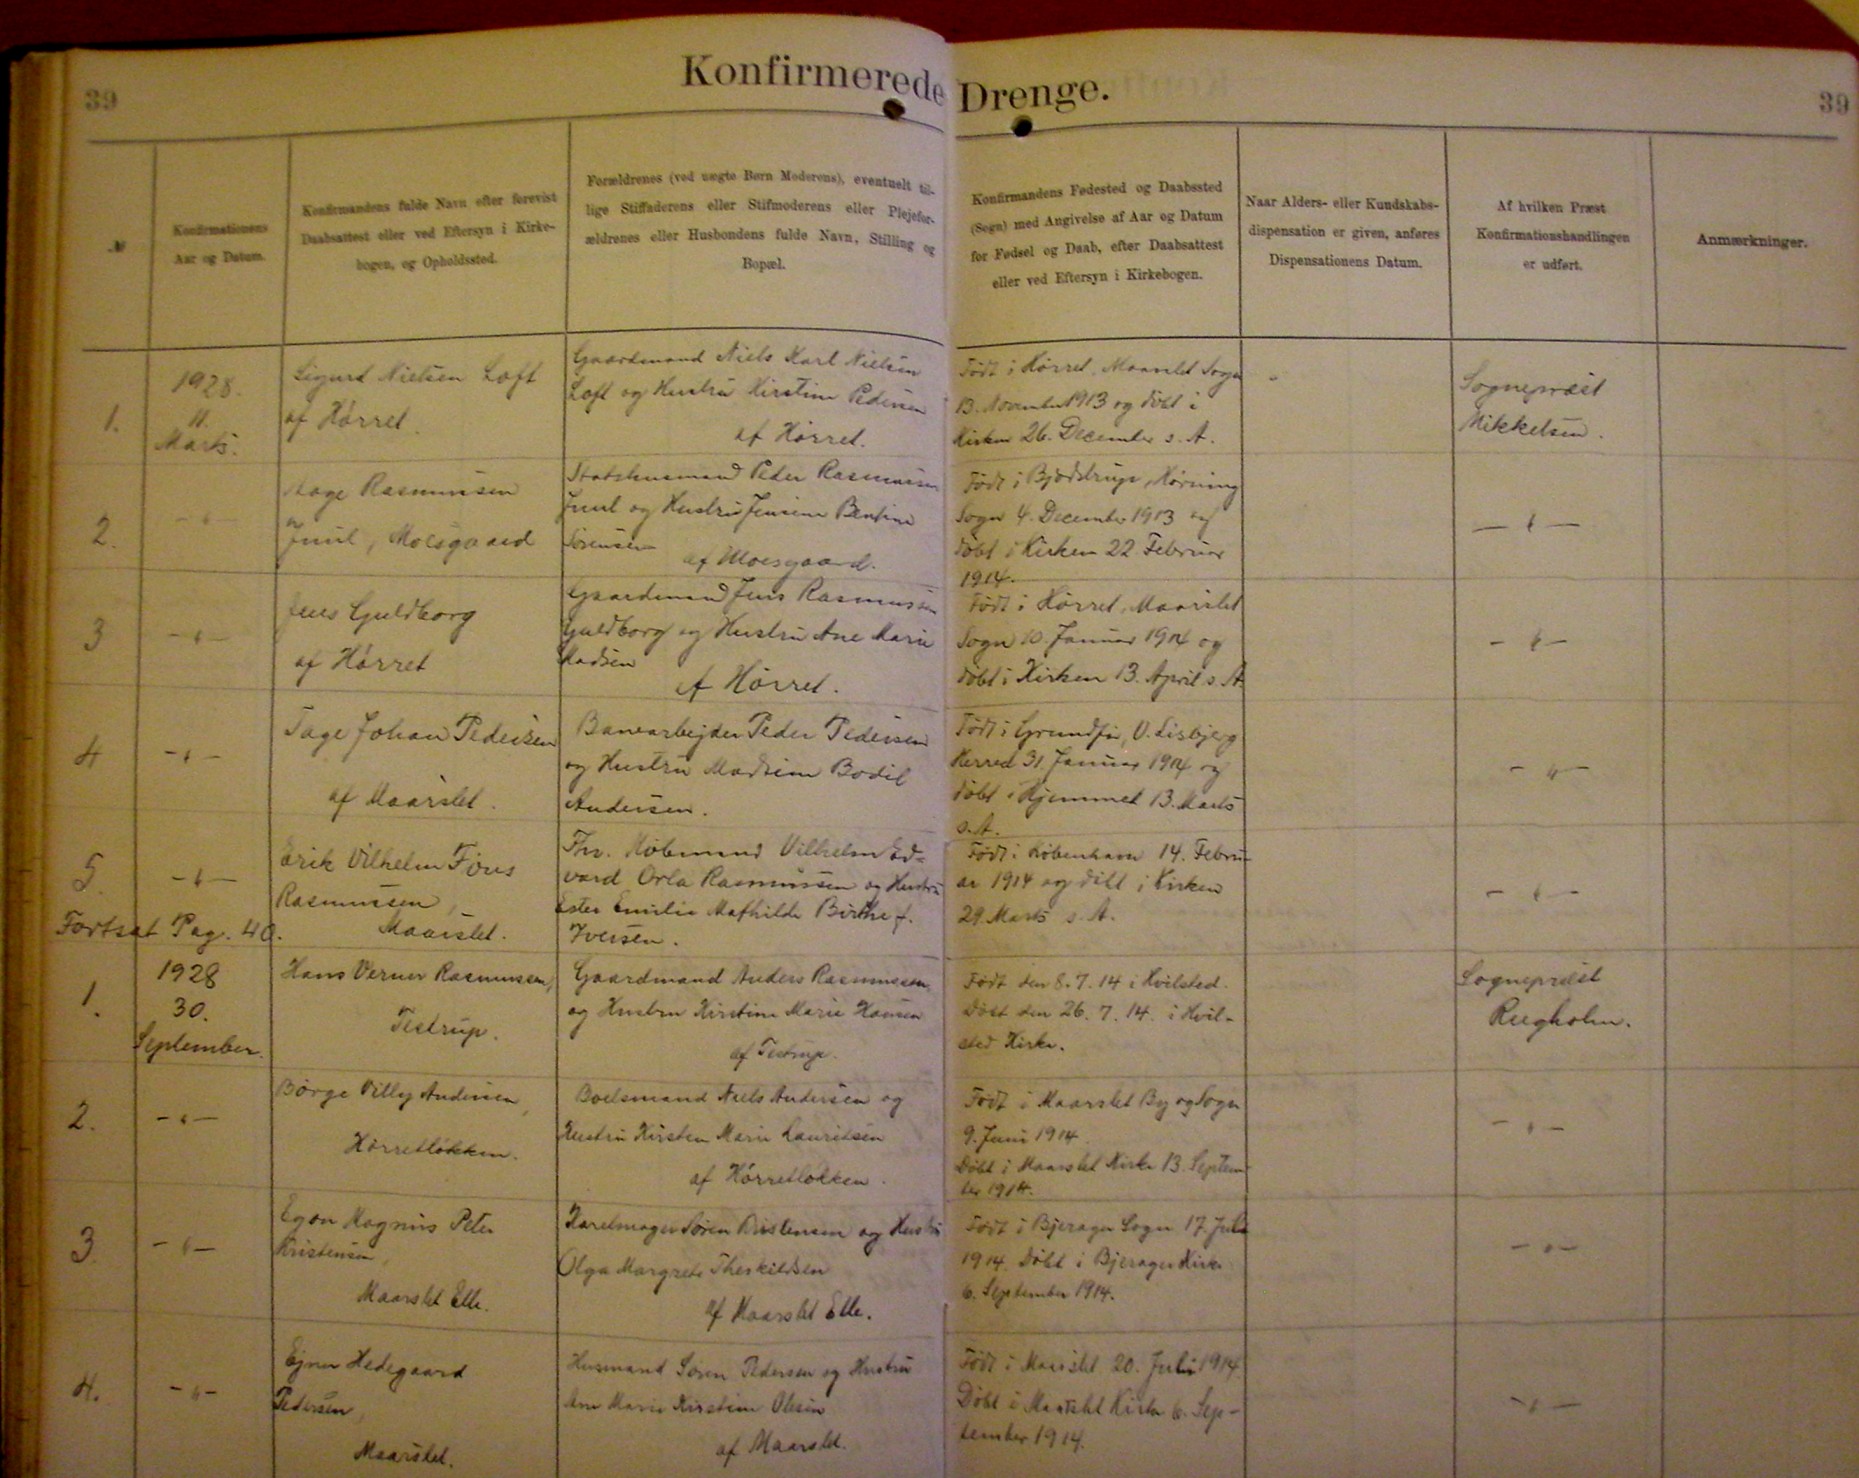 39
Konfirmerede Drenge.
39
№
Konfirmationens
Aar og Datum.
Konfirmandens fulde Navn efter forevist
Daabsattest eller ved Eftersyn i Kirke-
bogen, og Opholdssted.
Forældrenes (ved uægte Børn Moderens), eventuelt til-
lige Stiffaderens eller Stifmoderens eller Plejefor-
ældrenes eller Husbondens fulde Navn, Stilling og
Bopæl.
Konfirmandens Fødested og Daabssted
(Sogn) med Angivelse af Aar og Datum
for Fødsel og Daab, efter Daabsattest
eller ved Eftersyn i Kirkebogen.
Naar Alders- eller Kundskabs-
dispensation er given, anføres
Dispensationens Datum.
Af hvilken Præst
Konfirmationshandlingen
er udført.
Anmærkninger.
1.
1928.
11.
Marts.
Sigurd Nielsen Loft
af Hørret.
Gaardmand Niels Karl Nielsen
Loft og Hustru Kirstine Pedersen
af Hørret.
Født i Hørret, Maarslet Sogn
13. November 1913 og døbt i
Kirken 26. December s. A.
Sognepræst
Mikkelsen.
2.
- " -
Aage Rasmussen
Juul, Moesgaard
Statshusmand Peder Rasmussen
Juul og Hustru Jensine Bentine
Sørensen
af Moesgaard.
Født i Bjødstrup, Hørning
Sogn 4. December 1913 og
døbt i Kirken 22 Februar
1914.
- " -
3
- " -
Jens Guldborg
af Hørret
Gaardmand Jens Rasmussen
Guldborg og Hustru Ane Marie
Madsen
af Hørret.
Født i Hørret, Maarslet
Sogn 10. Januar 1914 og
døbt i Kirken 13. April s. A.
- " -
4
- " -
Tage Johan Pedersen
af Maarslet.
Banearbejder Peder Pedersen
og Hustru Madsine Bodil
Andersen.
Født i Grundfør, V. Lisbjerg
Herred 31. Januar 1914 og
døbt i Hjemmet 13. Marts
s. A.
- " -
5.
- " -
Erik Vilhelm Föns
Rasmussen,
Maarslet.
Fhv. Købmand Vilhelm Ed-
vard Orla Rasmussen og Hustru
Ester Emilie Mathilde Birthe f.
Iversen.
Født i København 14. Febru-
ar 1914 og døbt i Kirken
29. Marts s. A.
- " -
Fortsat Pag. 40.
1.
1928
30.
September.
Hans Verner Rasmussen,
Testrup.
Gaardmand Anders Rasmussen
og Hustru Kirstine Marie Hansen
af Testrup.
Født den 8. 7. 14 i Hvilsted.
Døbt den 26. 7. 14. i Hvil-
sted Kirke.
Sognepræst
Rugholm.
2.
- " -
Børge Villy Andersen,
Hørretløkken.
Boelsmand Niels Andersen og
Hustru Kirsten Marie Lauritsen
af Hørretløkken.
Født i Maarslet By og Sogn
9. Juni 1914
Døbt i Maarslet Kirke 13. Septem-
ber 1914.
- " -
3.
- " -
Egon Magnus Peter
Kristensen,
Maarslet Elle.
Karetmager Søren Kristensen og Hustru
Olga Margrete Theskildsen
af Maarslet Elle.
Født i Bjerager Sogn 17. Juli
1914. Døbt i Bjerager Kirke
6. September 1914.
- " -
4.
- " -
Ejner Hedegaard
Pedersen,
Maarslet.
Husmand Søren Pedersen og Hustru
Ane Marie Kirstine Olesen
af Maarslet.
Født i Maarslet 20. Juli 1914
Døbt i Maarslet Kirke 6. Sep-
tember 1914.
- " -